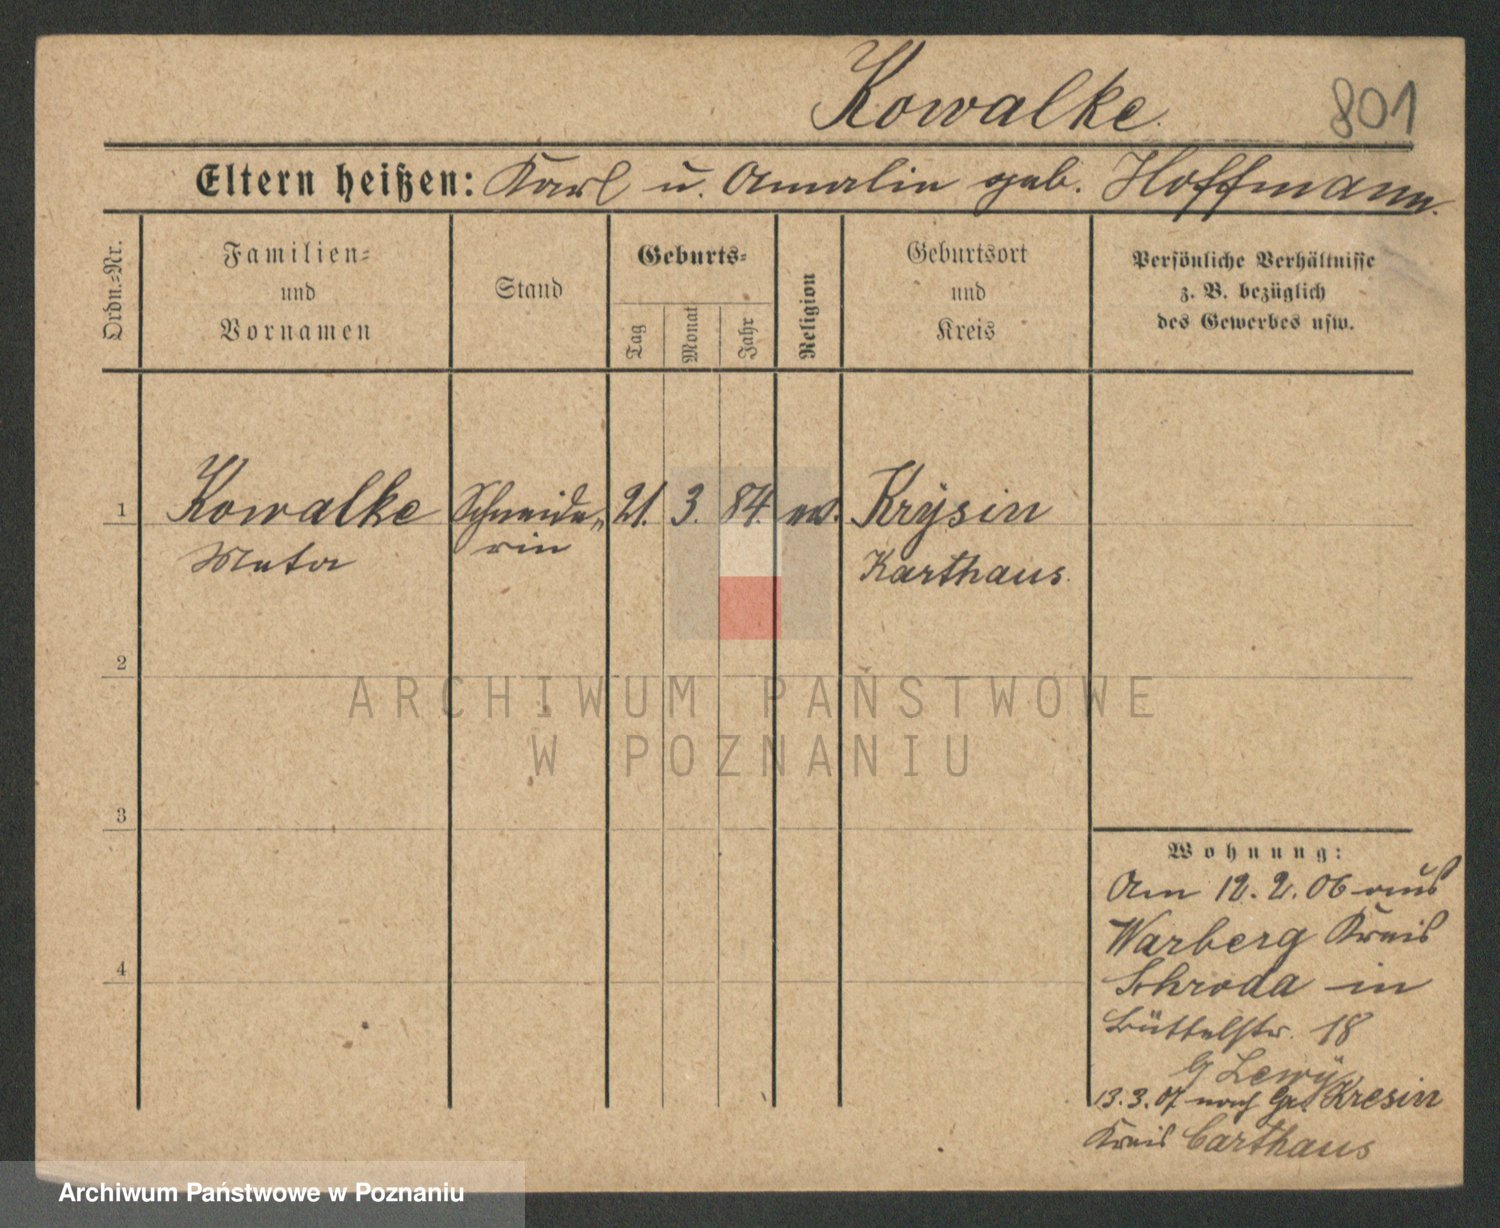 Kowalke.
801
Eltern heißen: Karl u. Amalie geb. Hoffmann.
Ordn.=Nr.
Familien=
und
Vornamen
Stand
Geburts=
Tag
Monat
Jahr
Religion
Geburtsort
und
Kreis
Persönliche Verhältnisse
z. B. bezüglich
des Gewerbes usw.
1
Kowalke
Meta
Schneide„
rin
21.
3.
84.
ev.
Krysin
Karthaus.
2
ARCHIWUM PAŃSTWOWE
W POZNANIU
3
4
Wohnung:
Am 12.2.06 aus
Warberg Kreis
Schroda in
Büttelstr. 18
Lewy
13.3.07 nach Gr. Kresin
Kreis Carthaus
Archiwum Państwowe w Poznaniu